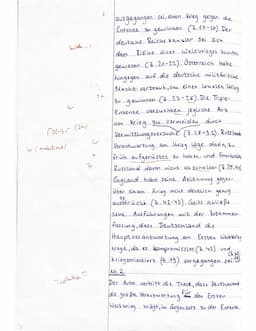 ausgegangen sei, einen Krieg gegen die
Entente zu gewinnen (Z.17-20). Der
deutsche Reichskanzler sei sich
dem Risiko eines Weltkrieges bewusst
gewesen (Z.21-22). Österreich habe
hingegen auf die deutsche militärische
Macht vertraut, um einen lokalen Krieg
zu gewinnen (Z.23-26). Die Triple-
Entente versuchten jegliche Art
von Krieg zu vermeiden durch
Vermittlungsversuche (Z.28-32). Russland
Verantwortung am Krieg läge darin, zu
früh aufgerüstet zu haben, und Frankreich
Russland davon nicht
England habe seine Ablehnung gegen-
über einem Krieg nicht deutlich genug
ausdrückt (Z.42-43). Geiss schließe
seine Ausführungen mit der Zusammen-
fassung, dass Deutschland die
Hauptverantwortung am Ersten Weltkrieg
trage, da es kompromisslos (Z.45) und
kriegsorientiert (Z.49) vorgegangen sei
Nr. 2
Der Autor vertritt die These, dass Deutschland
die größte Verantwortung für den Ersten
Weltkrieg trägt, im Gegensatz zu der Entente.